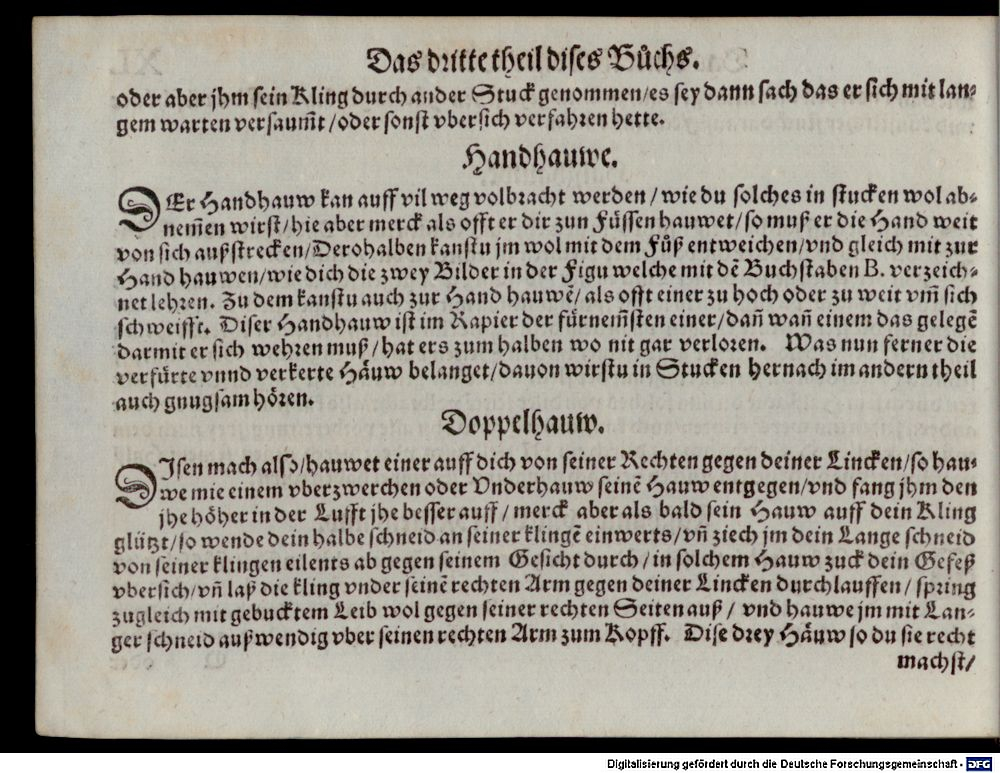 Das dritte theil dises Bůchs.
oder aber jhm sein Kling durch ander Stuck genommen/es sey dann sach das er sich mit lan⸗
gem warten versaum̃t/oder sonst vbersich verfahren hette.
Handhauwe.
DEr Handhauw kan auff vil weg volbracht werden/wie du solches in stucken wol ab⸗
nem̃en wirst/hie aber merck als offt er dir zun Füssen hauwet/so muß er die Hand weit
von sich außstrecken/Derohalben kanstu jm wol mit dem Fůß entweichen/vnd gleich mit zur
Hand hauwen/wie dich die zwey Bilder in der Figu welche mit dẽ Buchstaben B. verzeich⸗
net lehren. Zu dem kanstu auch zur Hand hauwẽ/als offt einer zu hoch oder zu weit vm̃ sich
schweifft. Diser Handhauw ist im Rapier der fürnem̃sten einer/dañ wañ einem das gelegẽ
darmit er sich wehren muß/hat ers zum halben wo nit gar verloren. Was nun ferner die
verfürte vnnd verkerte Häuw belanget/dauon wirstu in Stucken hernach im andern theil
auch gnugsam hören.
Doppelhauw.
DJsen mach also/hauwet einer auff dich von seiner Rechten gegen deiner Lincken/so hau⸗
we mie einem vberzwerchen oder Vnderhauw seinẽ Hauw entgegen/vnd fang jhm den
jhe höher in der Lufft jhe besser auff/merck aber als bald sein Hauw auff dein Kling
glützt/so wende dein halbe schneid an seiner klingẽ einwerts/vñ ziech jm dein Lange schneid
von seiner klingen eilents ab gegen seinem Gesicht durch/in solchem Hauw zuck dein Gefeß
vbersich/vñ laß die kling vnder seinẽ rechten Arm gegen deiner Lincken durchlauffen/spring
zugleich mit gebucktem Leib wol gegen seiner rechten Seiten auß/vnd hauwe jm mit Lan⸗
ger schneid außwendig vber seinen rechten Arm zum Kopff. Dise drey Häuw so du sie recht
machst/
Digitalisierung gefördert durch die Deutsche Forschungsgemeinschaft - DFG